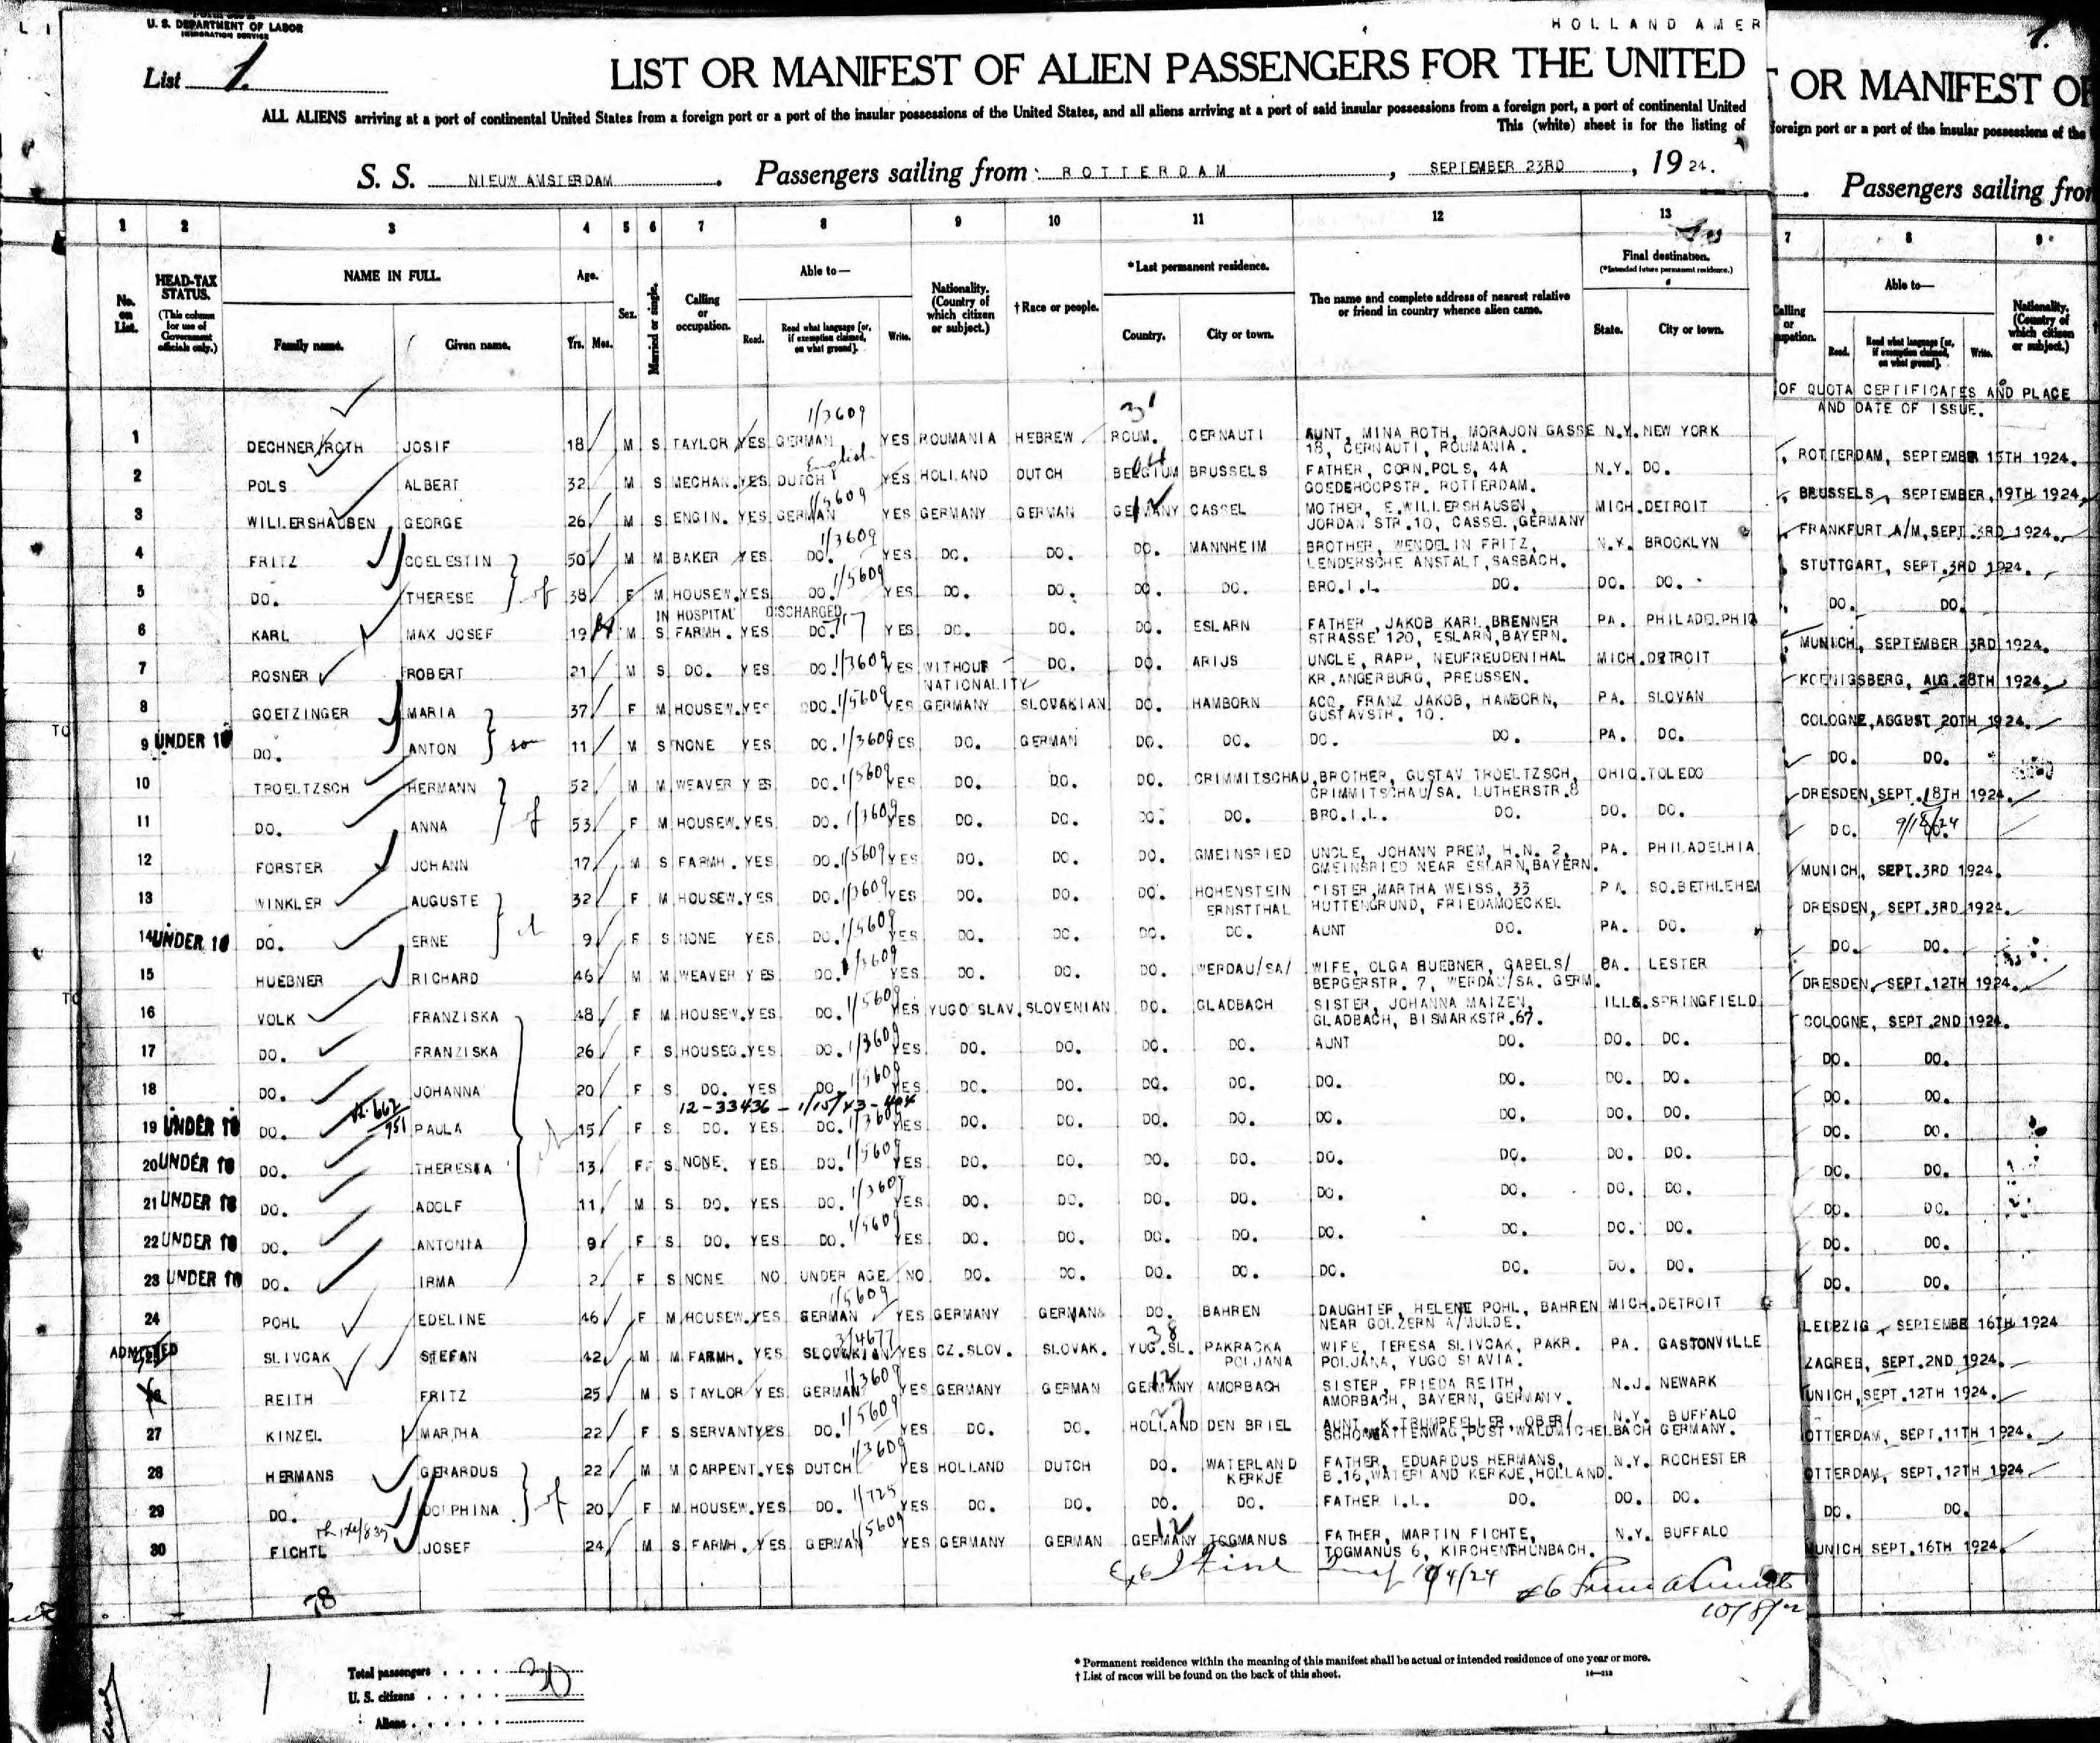 HOLLAND AMER
U. S. DEPARTMENT OF LABOR
IMMIGRATION SERVICE
List 1.
LIST OR MANIFEST OF ALIEN PASSENGERS FOR THE UNITED
ALL ALIENS arriving at a port of continental United States from a foreign port or a port of the insular possessions of the United States, and all aliens arriving at a port of said insular possessions from a foreign port, a port of continental United
This (white) sheet is for the listing of
S. S. NIEUW AMSTERDAM. Passengers sailing from ROTTERDAM, SEPTEMBER 23RD, 1924.
1 2 3 4 5 6 7 8 9 10 11 12 13
No. on List. HEAD-TAX STATUS. (This column for use of Government officials only.) NAME IN FULL. Family name. Given name. Age. Yrs. Mos. Sex. Married or single. Calling or occupation. Able to— Read. Read what language [or, if exemption claimed, on what ground]. Write. Nationality. (Country of which citizen or subject.) †Race or people. *Last permanent residence. Country. City or town. The name and complete address of nearest relative or friend in country whence alien came. Final destination. (*Intended future permanent residence.) State. City or town.
1 DECHNER/ROTH JOSIF 18 M S TAYLOR YES GERMAN 1/3609 YES ROUMANIA HEBREW ROUM. CERNAUTI AUNT, MINA ROTH, MORAJON GASSE 18, CERNAUTI, ROUMANIA. N.Y. NEW YORK
2 POLS ALBERT 32 M S MECHAN. YES DUTCH English YES HOLLAND DUTCH BELGIUM BRUSSELS FATHER, CORN.POLS, 4A GOEDEHOOPSTR. ROTTERDAM. N.Y. DO.
3 WILLERSHAUSEN GEORGE 26 M S ENGIN. YES GERMAN 1/5609 YES GERMANY GERMAN GERMANY CASSEL MOTHER, E.WILLERSHAUSEN, JORDAN STR.10, CASSEL, GERMANY MICH. DETROIT
4 FRITZ COELESTIN 50 M M BAKER YES DO. 1/3609 YES DO. DO. DO. MANNHEIM BROTHER, WENDELIN FRITZ, LENDERSCHE ANSTALT, SASBACH. N.Y. BROOKLYN
5 DO. THERESE 38 F M HOUSEW. YES DO. 1/5609 YES DO. DO. DO. DO. BRO.I.L. DO. DO. DO.
IN HOSPITAL DISCHARGED
6 KARL MAX JOSEF 19 M S FARMH. YES DO. YES DO. DO. DO. ESLARN FATHER, JAKOB KARL, BRENNER STRASSE 120, ESLARN, BAYERN. PA. PHILADELPHIA
7 ROSNER ROBERT 21 M S DO. YES DO. 1/3609 YES WITHOUT NATIONALITY DO. DO. ARIJS UNCLE, RAPP, NEUFREUDENTHAL KR.ANGERBURG, PREUSSEN. MICH. DETROIT
8 GOETZINGER MARIA 37 F M HOUSEW. YES DO. 1/5609 YES GERMANY SLOVAKIAN DO. HAMBORN ACQ, FRANZ JAKOB, HAMBORN, GUSTAVSTR. 10. PA. SLOVAN
9 UNDER 16 DO. ANTON son 11 M S NONE YES DO. 1/3609 YES DO. GERMAN DO. DO. DO. DO. PA. DO.
10 TROELTZSCH HERMANN 52 M M WEAVER YES DO. 1/5609 YES DO. DO. DO. CRIMMITSCHAU, BROTHER, GUSTAV TROELTZSCH, CRIMMITSCHAU/SA. LUTHERSTR.8 OHIO. TOLEDO
11 DO. ANNA 53 F M HOUSEW. YES DO. 1/3609 YES DO. DO. DO. DO. BRO.I.L. DO. DO. DO.
12 FORSTER JOHANN 17 M S FARMH. YES DO. 1/5609 YES DO. DO. DO. GMEINSRIED UNCLE, JOHANN PREM, H.N. 2, GMEINSRIED NEAR ESLARN, BAYERN. PA. PHILADELHIA
13 WINKLER AUGUSTE 32 F M HOUSEW. YES DO. 1/3609 YES DO. DO. DO. HOHENSTEIN ERNSTTHAL SISTER, MARTHA WEISS, 33 HUTTENGRUND, FRIEDAMOECKEL PA. SO.BETHLEHEM
14 UNDER 16 DO. ERNE 9 F S NONE YES DO. 1/5609 YES DO. DO. DO. DO. AUNT DO. PA. DO.
15 HUEBNER RICHARD 46 M M WEAVER YES DO. 1/3609 YES DO. DO. DO. WERDAU/SA/ WIFE, OLGA BUEBNER, GABELS/ BERGERSTR. 7, WERDAU/SA. GERM. PA. LESTER
16 VOLK FRANZISKA 48 F M HOUSEW. YES DO. 1/5609 YES YUGO SLAV. SLOVENIAN DO. GLADBACH SISTER, JOHANNA MAIZEN, GLADBACH, BISMARKSTR.67. ILLS. SPRINGFIELD
17 DO. FRANZISKA 26 F S HOUSEG. YES DO. 1/3609 YES DO. DO. DO. DO. AUNT DO. DO. DO.
18 DO. JOHANNA 20 F S DO. YES DO. 1/5609 YES DO. DO. DO. DO. DO. DO. DO. DO.
12-33436 - 1/15/43-404
19 UNDER 16 DO. PAULA 15 F S DO. YES DO. 1/3609 YES DO. DO. DO. DO. DO. DO. DO. DO.
20 UNDER 16 DO. THERESIA 13 F S NONE. YES DO. 1/5609 YES DO. DO. DO. DO. DO. DO. DO. DO.
21 UNDER 16 DO. ADOLF 11 M S DO. YES DO. 1/3609 YES DO. DO. DO. DO. DO. DO. DO. DO.
22 UNDER 16 DO. ANTONIA 9 F S DO. YES DO. 1/5609 YES DO. DO. DO. DO. DO. DO. DO. DO.
23 UNDER 16 DO. IRMA 2 F S NONE NO UNDER AGE NO DO. DO. DO. DO. DO. DO. DO. DO.
24 POHL EDELINE 46 F M HOUSEW. YES GERMAN 1/5609 YES GERMANY GERMAN DO. BAHREN DAUGHTER, HELENE POHL, BAHREN NEAR GOLZERN A/MULDE. MICH. DETROIT
ADMITTED SLIVCAK STEFAN 42 M M FARMH. YES SLOVAKIAN 3/4677 YES CZ.SLOV. SLOVAK. YUG.SL. PAKRACKA POLJANA WIFE, TERESA SLIVCAK, PAKR. POLJANA, YUGO SLAVIA. PA. GASTONVILLE
26 REITH FRITZ 25 M S TAYLOR YES GERMAN 1/3609 YES GERMANY GERMAN GERMANY AMORBACH SISTER, FRIEDA REITH, AMORBACH, BAYERN, GERMANY. N.J. NEWARK
27 KINZEL MARTHA 22 F S SERVANT YES DO. 1/5609 YES DO. DO. HOLLAND DEN BRIEL AUNT, K.TRUMPFELLER, OBER/ SCHONMATTENWAG, POST WALDMICHELBACH GERMANY. N.Y. BUFFALO
28 HERMANS GERARDUS 22 M M CARPENT. YES DUTCH 1/3609 YES HOLLAND DUTCH DO. WATERLAND KERKJE FATHER, EDUARDUS HERMANS, B.16, WATERLAND KERKJE, HOLLAND. N.Y. ROCHESTER
29 DO. DOLPHINA 20 F M HOUSEW. YES DO. 1/725 YES DO. DO. DO. DO. FATHER I.L. DO. DO. DO.
30 FICHTL JOSEF 24 M S FARMH. YES GERMAN 1/5609 YES GERMANY GERMAN GERMANY TOGMANUS FATHER, MARTIN FICHTE, TOGMANUS 6, KIRCHENTHUNBACH. N.Y. BUFFALO
78
Total passengers 30
U. S. citizens
Aliens
* Permanent residence within the meaning of this manifest shall be actual or intended residence of one year or more.
† List of races will be found on the back of this sheet.
14—213
1.
OR MANIFEST OF
foreign port or a port of the insular possessions of the
Passengers sailing from
7 8 9
Calling or occupation. Able to— Read. Read what language [or, if exemption claimed, on what ground]. Write. Nationality. (Country of which citizen or subject.)
OF QUOTA CERTIFICATES AND PLACE
AND DATE OF ISSUE.
ROTTERDAM, SEPTEMBER 15TH 1924.
BRUSSELS, SEPTEMBER, 19TH 1924
FRANKFURT A/M, SEPT. 3RD 1924.
STUTTGART, SEPT. 3RD 1924.
DO. DO.
MUNICH, SEPTEMBER 3RD 1924.
KOENIGSBERG, AUG. 28TH 1924.
COLOGNE, AUGUST 20TH 1924.
DO. DO.
DRESDEN, SEPT. 18TH 1924.
DO. 9/18/24
MUNICH, SEPT. 3RD 1924.
DRESDEN, SEPT. 3RD 1924.
DO. DO.
DRESDEN, SEPT. 12TH 1924.
COLOGNE, SEPT. 2ND 1924.
DO. DO.
DO. DO.
DO. DO.
DO. DO.
DO. DO.
DO. DO.
DO. DO.
LEIPZIG, SEPTEMBE 16TH 1924
ZAGREB, SEPT. 2ND 1924.
UNICH, SEPT. 12TH 1924.
OTTERDAM, SEPT. 11TH 1924.
OTTERDAM, SEPT. 12TH 1924
DO. DO.
MUNICH SEPT. 16TH 1924